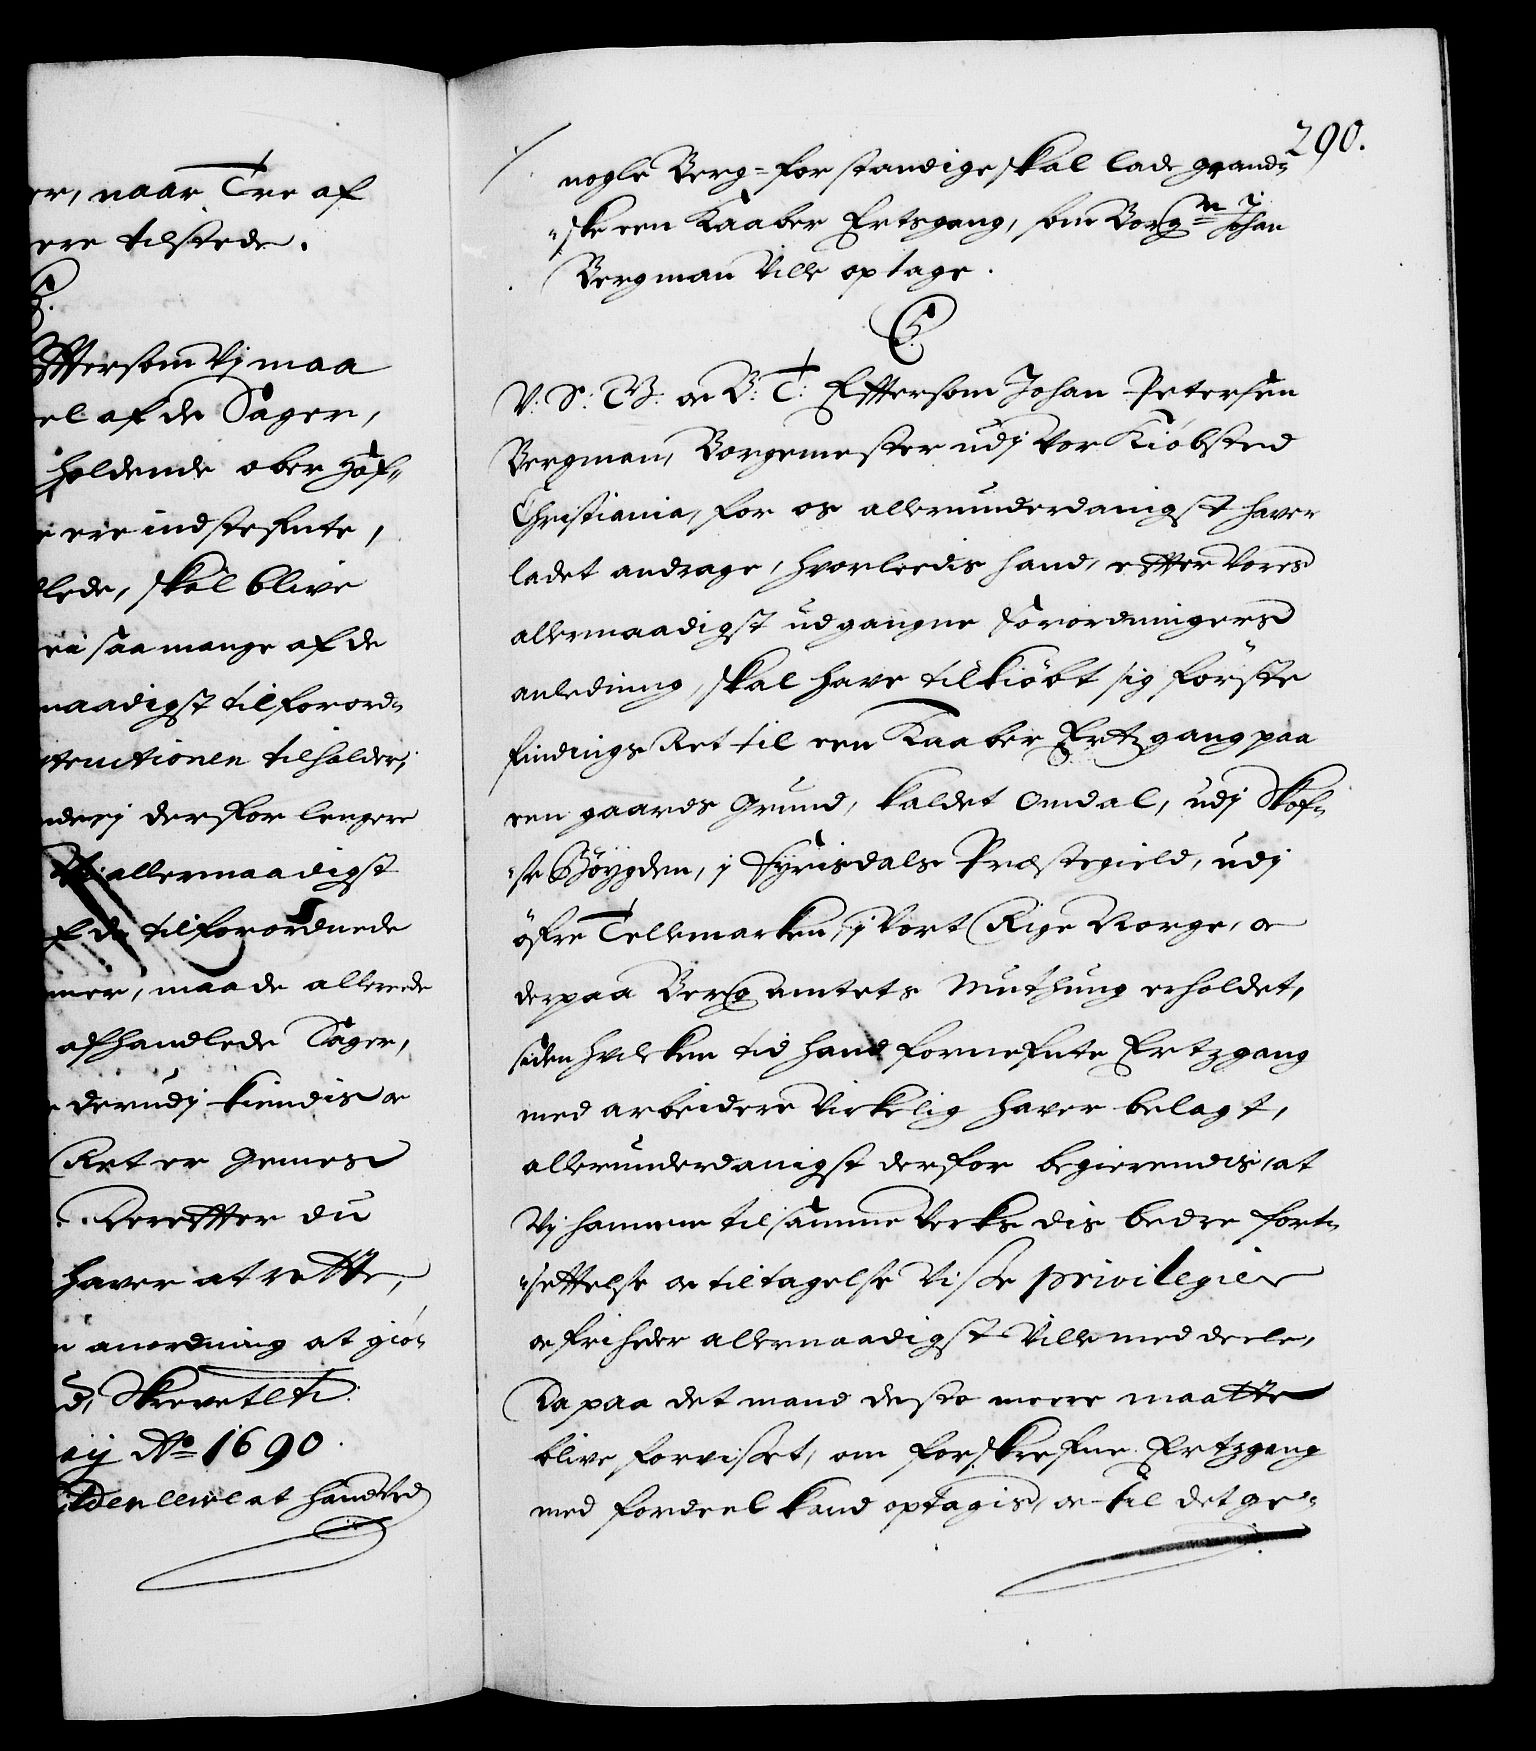 er, naar Tre af
ere tilstede.
C.
Efftersom Vj maa
el af de Sager,
holdende ober Hof-
e ere indstefnte,
lede, skal blive
saa mange af de
naadigst tilforord-
structionen tilholder,
derfor lengere
Vj allernaadigst
f de tilforordnede
mer, maa de allerede
afhandlede Sager,
derudj kiendis oc
Ret er Gemes
Dereffter du
haver at rette,
n anordning at giö-
d, Skrevet etc:
aij Ao 1690.
290.
nogle Berg-forstandige skal lade grand-
ske een Kaaber Ertsgang, som Borgmr Johan
Bergman Ville optage.
C.
V: S: G: V: oc B: T: Efftersom Johan Petersen
Bergman, Borgemester udj Vor Kiöbsted
Christiania, for os allerunderdanigst haver
ladet andrage, hvorledis hand, effter Vores
allernaadigst udgangne Forordningers
anledning, skal have tilkiöbt sig förste
findings Ret til een Kaaber Ertzgang paa
een gaards Grund, kaldet Omdal, udj Skof-
se Böygden, j Fyrisdals Præstegield, udj
öfre Tellemarken, j Vort Rige Norge, oc
derpaa Berg Amtets Muthung erholdet,
siden hvilken tid hand fornefnte Ertzgang
med arbeidere Virkelig haver belagt,
allerunderdanigst derfor begierendis, at
Vj hannem til samme Verks dis bedre fort-
settelse oc tiltagelse Visse privilegier
oc friheder allernaadigst Ville meddeele,
Da paa det mand desto meere maatte
blive forvisset, om forskrefne Ertzgang
med fordeel kand optagis, oc til det ge-